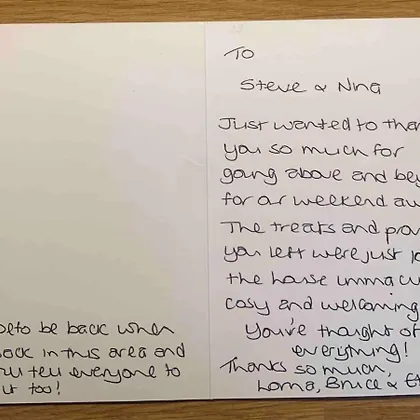 to be back when
back in this area and
tell everyone to
it too!
To
Steve & Nina
Just wanted to than
you so much for
going above and bey
for our weekend aw
The treats and prov
you left were just
the house immacu
cosy and welcoming
You've thought of
everything!
Thanks so much,
Lorna, Bruce &